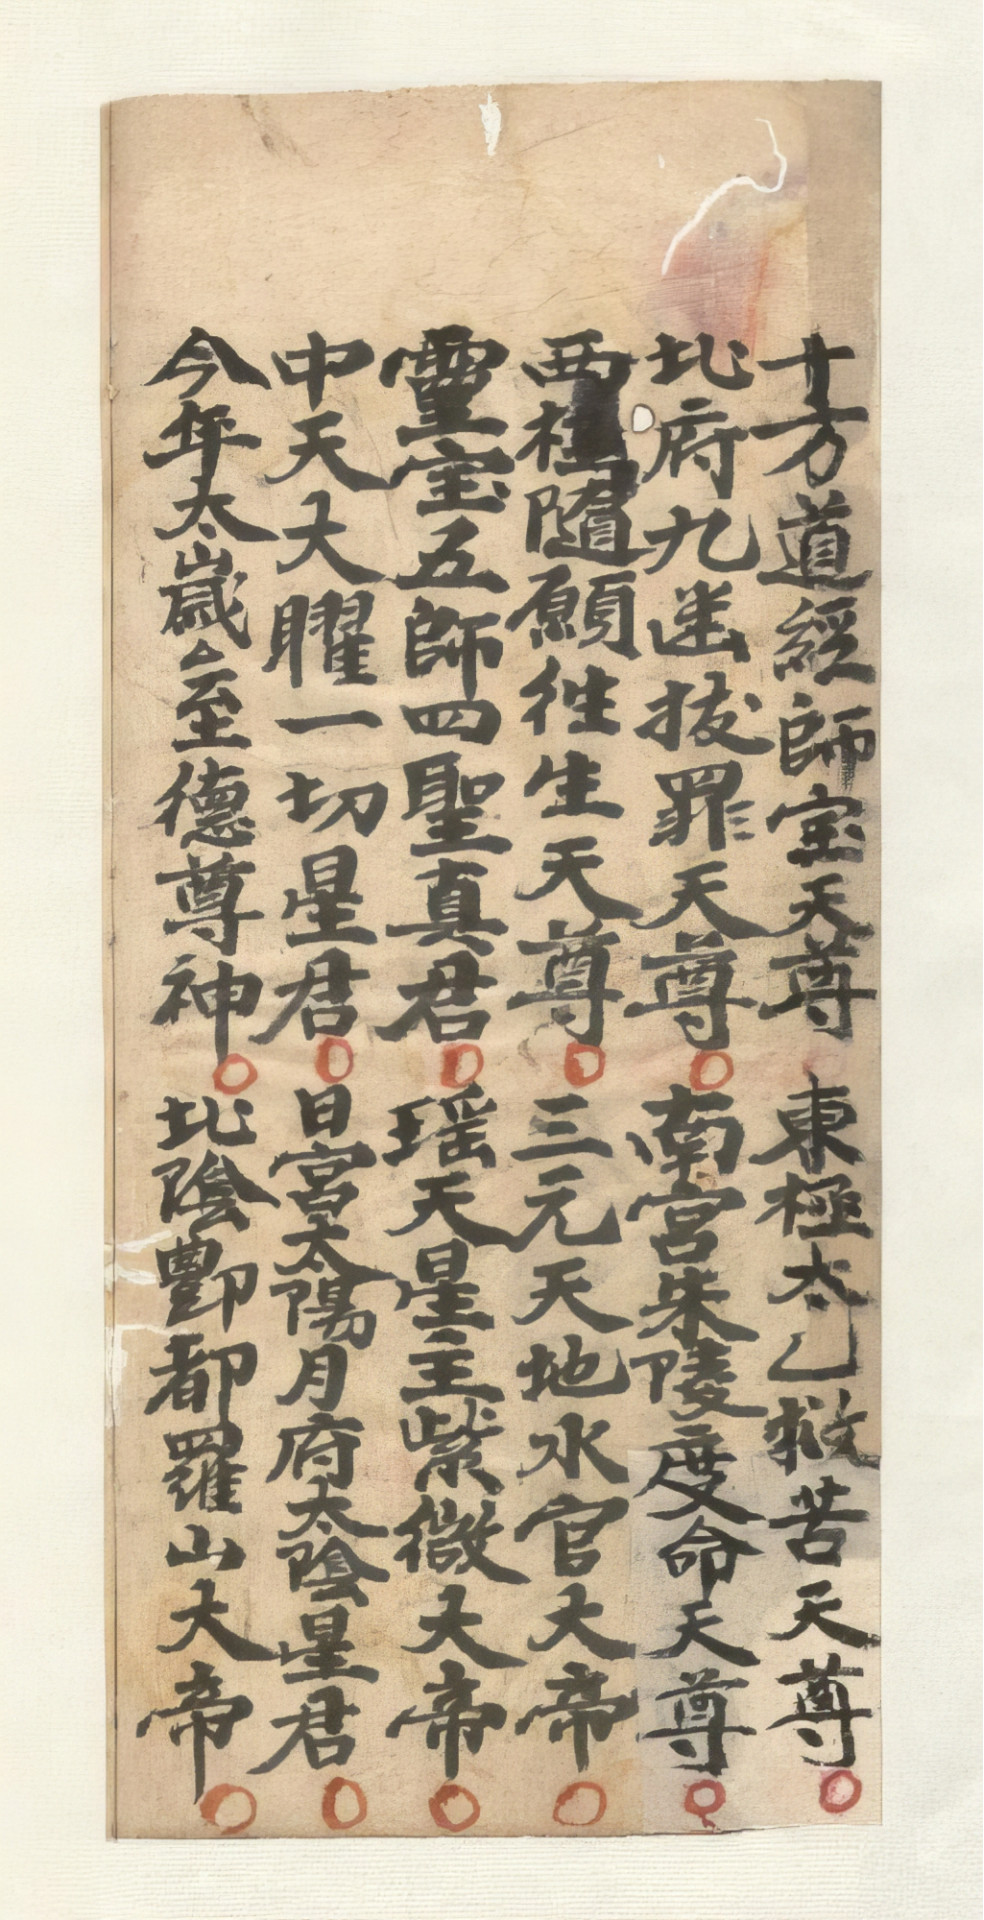 十方道經師宝天尊 東極太乙救苦天尊
北府九幽拔罪天尊 南宮朱陵度命天尊
西極隨願往生天尊 三元天地水官大帝
靈宝五師四聖真君 瑶天星主紫微大帝
中天大曜一切星君 日宮太陽月府太陰星君
今年太歲至德尊神 北陰酆都羅山大帝